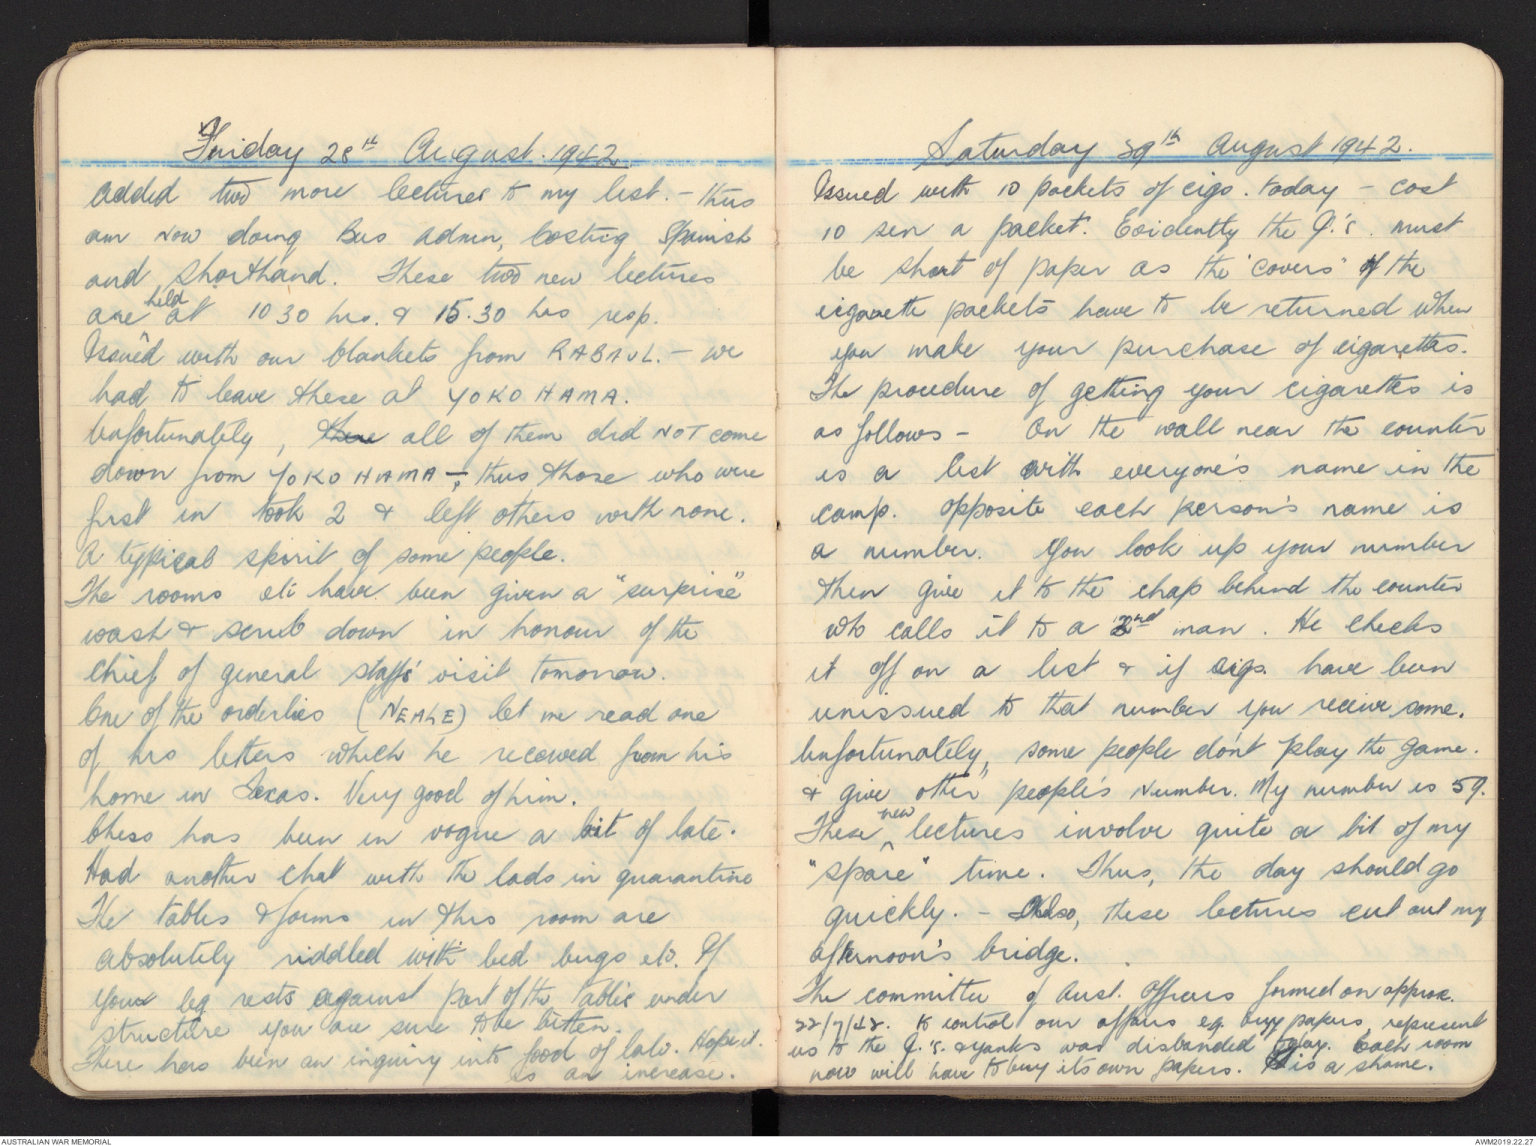 Friday 28th August. 1942.
Added two more lectures to my list. - thus
am now doing Bus Admin, Costing, Spanish
and Shorthand. These two new lectures
are held at 10 30 hrs. & 15.30 hrs resp.
Issued with our blankets from RABAUL. - we
had to leave these at YOKOHAMA.
Unfortunately, there all of them did NOT come
down from YOKOHAMA -, thus those who were
first in took 2 & left others with none.
A typical spirit of some people.
The rooms etc have been given a "surprise"
wash & scrub down in honour of the
Chief of general staffs' visit tomorrow.
One of the orderlies (NEALE) let me read one
of his letters which he received from his
home in Texas. Very good of him.
Chess has been in vogue a bit of late.
Had another chat with the lads in quarantine
The tables & forms in this room are
absolutely riddled with bed bugs etc. If
your leg rests against part of the tables under
structure you are sure to be bitten.
There has been an inquiry into food of late. Hope it.
is an increase.
Saturday 29th August 1942.
Issued with 10 packets of cigs. today - cost
10 sen a packet. Evidently the J.'s. must
be short of paper as the "covers" of the
cigarette packets have to be returned when
you make your purchase of cigarettes.
The procedure of getting your cigarettes is
as follows - On the wall near the counter
is a list with everyone's name in the
camp. Opposite each person's name is
a number. You look up your number
then give it to the chap behind the counter
who calls it to a 2nd man. He checks
it off on a list & if cigs. have been
unissued to that number you receive some.
Unfortunately, some people don't play the game.
& give "other" people's number. My number is 59.
These new lectures involve quite a bit of my
"spare" time. Thus, the day should go
quickly. - Also, these lectures cut out my
afternoon's bridge.
The committee of Aust. Officers formed on approx.
22/7/42. to control our affairs eg. buy papers, represent
us to the J.'s. & yanks was disbanded today. Each room
now will have to buy its own papers. It is a shame.
AUSTRALIAN WAR MEMORIAL
AWM2019.22.27